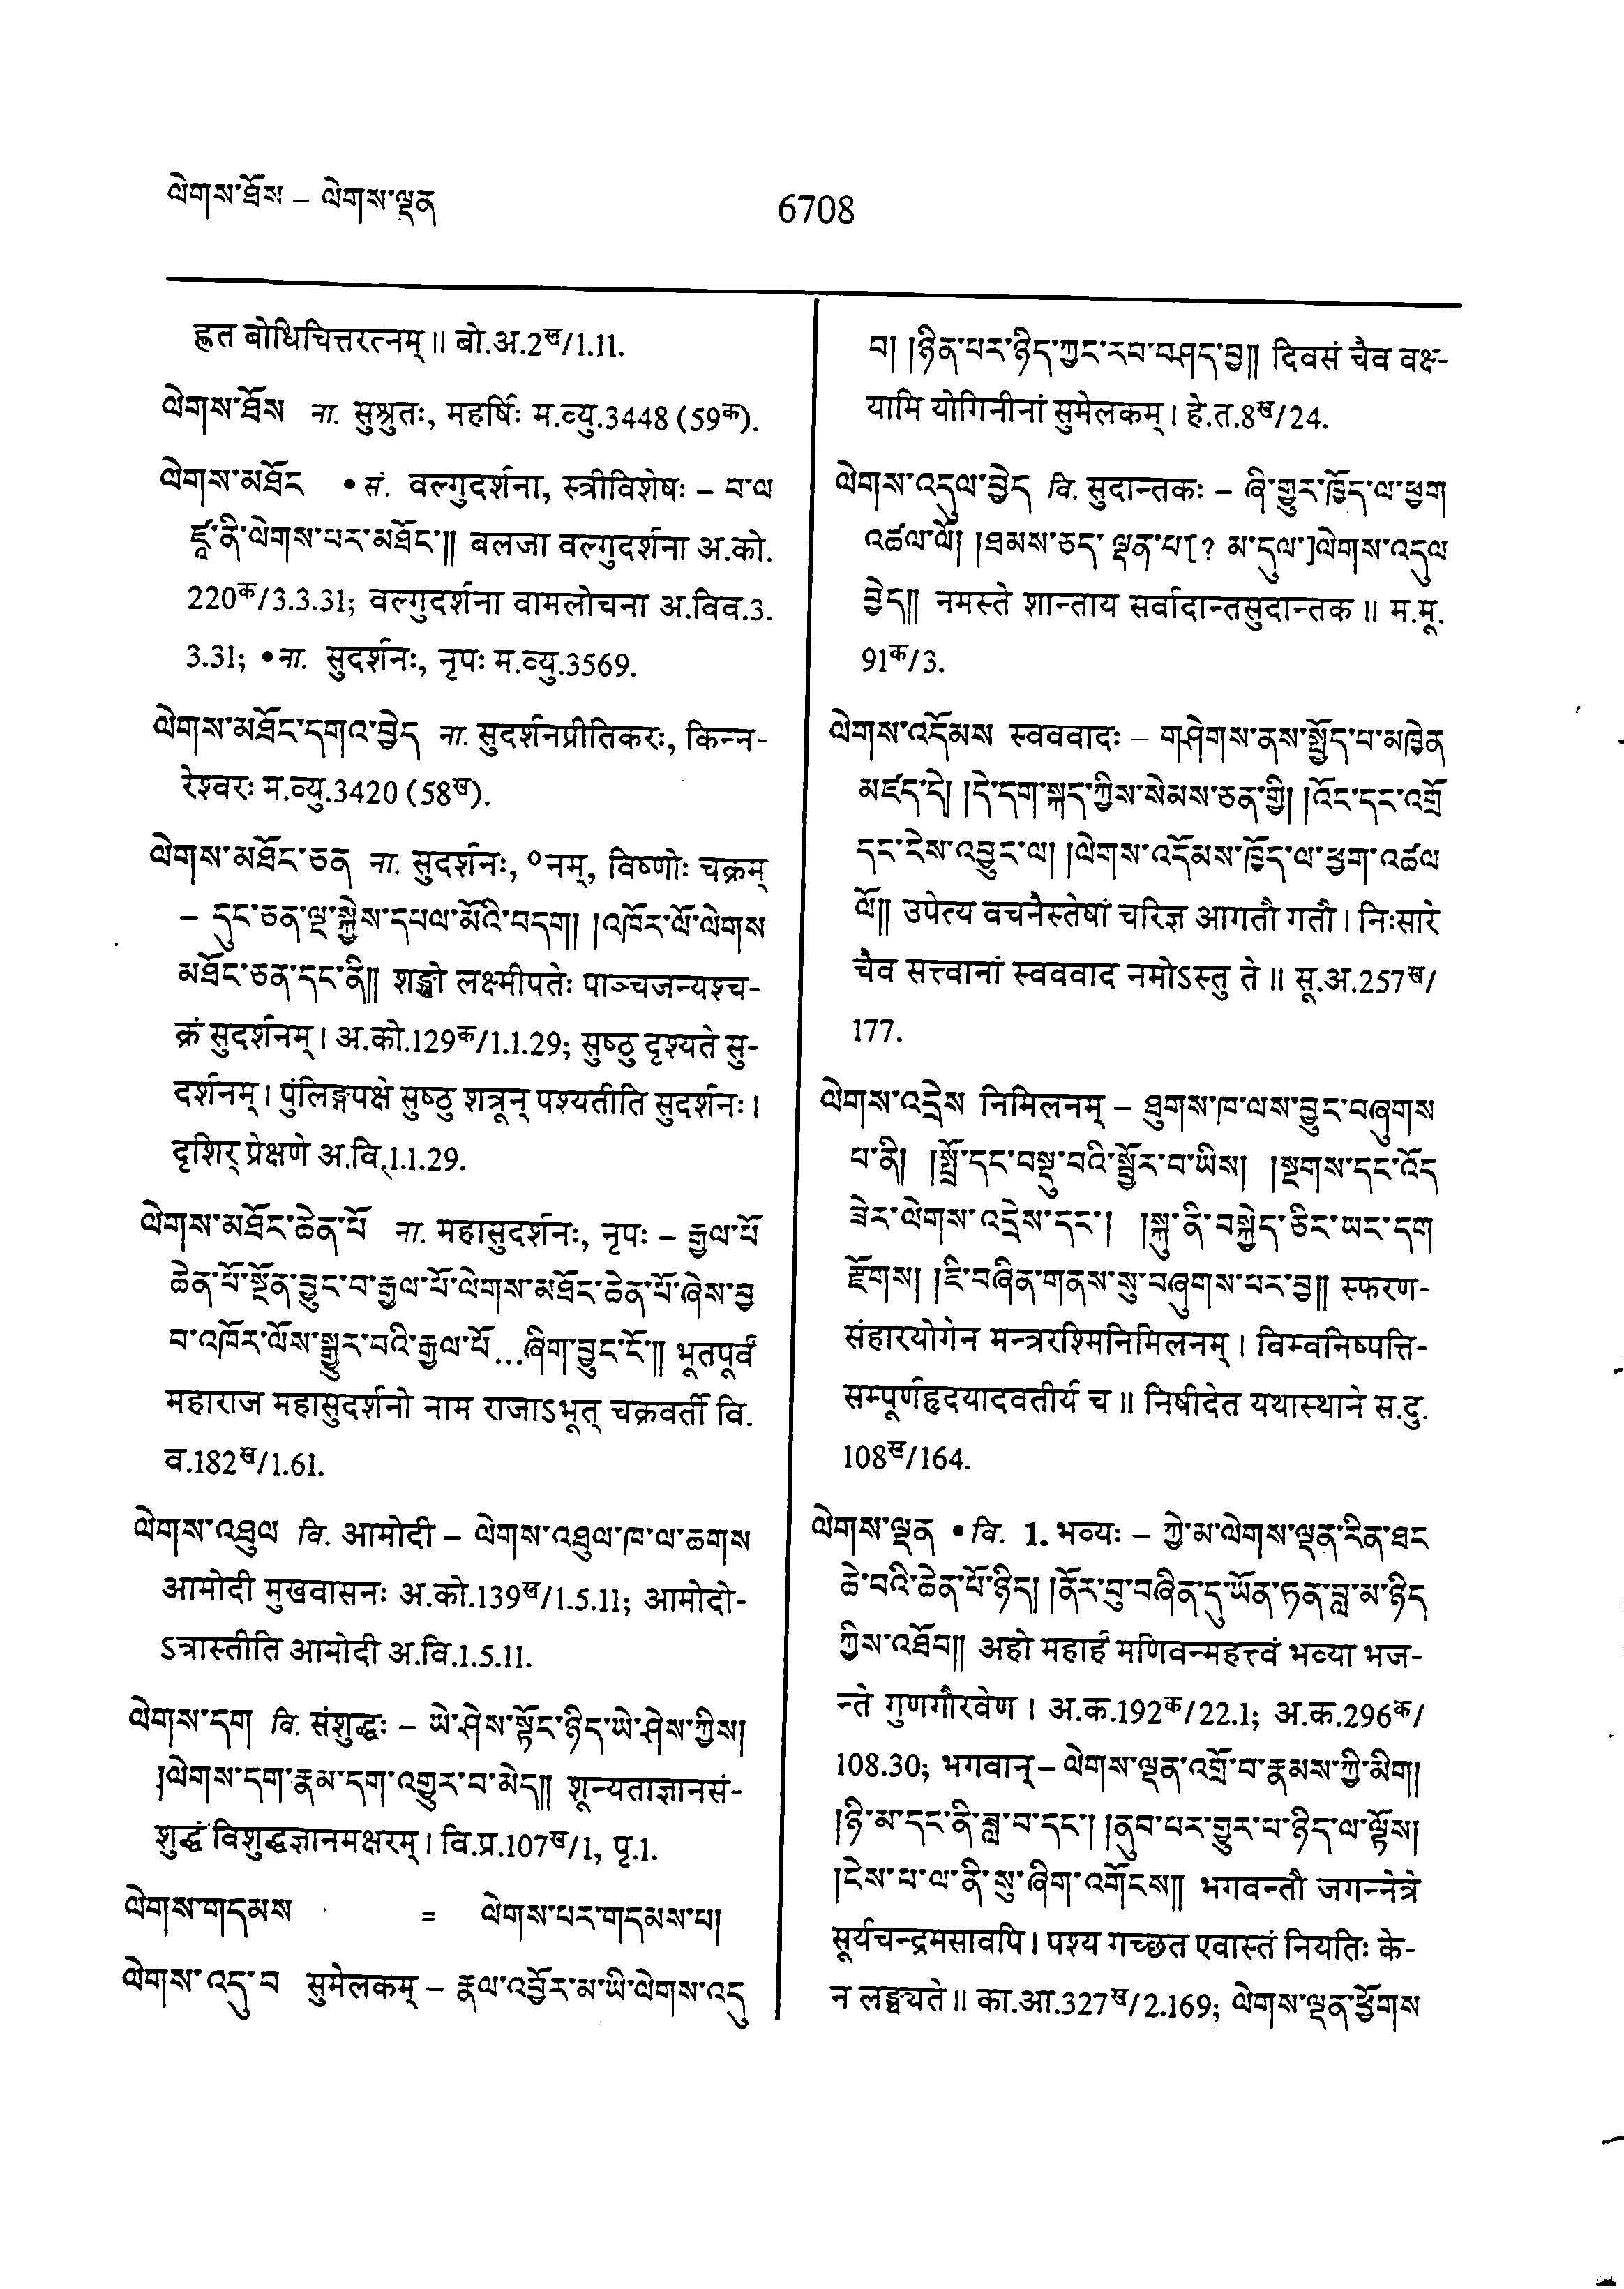 ལེགས་ཐོས – ལེགས་ལྡན
6708
ह्णत बोधिचित्तरत्नम्॥ बो.अ.2ख/1.11.
ལེགས་ཐོས ना. सुश्रुतः, महर्षिः म.व्यु.3448 (59क).
ལེགས་མཐོང •सं. वल्गुदर्शना, स्त्रीविशेषः – བ་ལ
ཛཱ་ནི་ལེགས་པར་མཐོང་༎ बलजा वल्गुदर्शना अ.को.
220क/3.3.31; वल्गुदर्शना वामलोचना अ.विव.3.
3.31; •ना. सुदर्शनः, नृपः म.व्यु.3569.
ལེགས་མཐོང་དགའ་བྱེད ना. सुदर्शनप्रीतिकरः, किन्न-
रेश्वरः म.व्यु.3420 (58ख).
ལེགས་མཐོང་ཅན ना. सुदर्शनः, ॰नम्, विष्णोः चक्रम्
– དུང་ཅན་ལྔ་སྐྱེས་དཔལ་མོའི་བདག། །འཁོར་ལོ་ལེགས
མཐོང་ཅན་དང་ནི༎ शङ्खो लक्ष्मीपतेः पाञ्चजन्यश्च-
क्रं सुदर्शनम्। अ.को.129क/1.1.29; सुष्ठु दृश्यते सु-
दर्शनम्। पुंलिङ्गपक्षे सुष्ठु शत्रून् पश्यतीति सुदर्शनः।
दृशिर् प्रेक्षणे अ.वि.1.1.29.
ལེགས་མཐོང་ཆེན་པོ ना. महासुदर्शनः, नृपः – རྒྱལ་པོ
ཆེན་པོ་སྔོན་བྱུང་བ་རྒྱལ་པོ་ལེགས་མཐོང་ཆེན་པོ་ཞེས་བྱ
བ་འཁོར་ལོས་སྒྱུར་བའི་རྒྱལ་པོ...ཞིག་བྱུང་ངོ་༎ भूतपूर्वं
महाराज महासुदर्शनो नाम राजाऽभूत् चक्रवर्ती वि.
व.182ख/1.61.
ལེགས་འཐུལ वि. आमोदी – ལེགས་འཐུལ་ཁ་ལ་ཆགས
आमोदी मुखवासनः अ.को.139ख/1.5.11; आमोदो-
ऽत्रास्तीति आमोदी अ.वि.1.5.11.
ལེགས་དག वि. संशुद्धः – ཡེ་ཤེས་སྟོང་ཉིད་ཡེ་ཤེས་ཀྱིས།
།ལེགས་དག་རྣམ་དག་འགྱུར་བ་མེད༎ शून्यताज्ञानसं-
शुद्धं विशुद्धज्ञानमक्षरम्। वि.प्र.107ख/1, पृ.1.
ལེགས་གདམས = ལེགས་པར་གདམས་པ།
ལེགས་འདུ་བ सुमेलकम् – རྣལ་འབྱོར་མ་ཡི་ལེགས་འདུ
བ། །ཉིན་པར་ཉིད་ཀྱང་རབ་བཤད་བྱ༎ दिवसं चैव वक्ष-
यामि योगिनीनां सुमेलकम्। हे.त.8ख/24.
ལེགས་འདུལ་བྱེད वि. सुदान्तकः – ཞི་གྱུར་ཁྱོད་ལ་ཕྱག
འཚལ་ལོ། །ཐམས་ཅད་ ལྡན་པ[? མ་དུལ་]ལེགས་འདུལ
བྱེད༎ नमस्ते शान्ताय सर्वादान्तसुदान्तक॥ म.मू.
91क/3.
ལེགས་འདོམས स्वववादः – གཤེགས་ནས་སྤྱོད་པ་མཁྱེན
མཛད་དེ། །དེ་དག་སྐད་ཀྱིས་སེམས་ཅན་གྱི། །འོང་དང་འགྲོ
དང་ངེས་འབྱུང་ལ། །ལེགས་འདོམས་ཁྱོད་ལ་ཕྱག་འཚལ
ལོ༎ उपेत्य वचनैस्तेषां चरिज्ञ आगतौ गतौ। निःसारे
चैव सत्त्वानां स्वववाद नमोऽस्तु ते॥ सू.अ.257ख/
177.
ལེགས་འདྲེས निमिलनम् – ཐུགས་ཁ་ལས་བྱུང་བཞུགས
པ་ནི། །སྤྲོ་དང་བསྡུ་བའི་སྦྱོར་བ་ཡིས། །སྔགས་དང་འོད
ཟེར་ལེགས་འདྲེས་དང་། །སྐུ་ནི་བསྐྱེད་ཅིང་ཡང་དག
རྫོགས། །ཇི་བཞིན་གནས་སུ་བཞུགས་པར་བྱ༎ स्फरण-
संहारयोगेन मन्त्ररश्मिनिमिलनम्। बिम्बनिष्पत्ति-
सम्पूर्णहृदयादवतीर्य च॥ निषीदेत यथास्थाने स.दु.
108ख/164.
ལེགས་ལྡན •वि. 1. भव्यः – ཀྱེ་མ་ལེགས་ལྡན་རིན་ཐང
ཆེ་བའི་ཆེན་པོ་ཉིད། །ནོར་བུ་བཞིན་དུ་ཡོན་ཏན་བླ་མ་ཉིད
ཀྱིས་འཐོབ༎ अहो महार्हं मणिवन्महत्त्वं भव्या भज-
न्ते गुणगौरवेण। अ.क.192क/22.1; अ.क.296क/
108.30; भगवान् – ལེགས་ལྡན་འགྲོ་བ་རྣམས་ཀྱི་མིག།
།ཉི་མ་དང་ནི་ཟླ་བ་དང་། །ནུབ་པར་གྱུར་པ་ཉིད་ལ་ལྟོས།
།ངེས་པ་ལ་ནི་སུ་ཞིག་འགོངས༎ भगवन्तौ जगन्नेत्रे
सूर्यचन्द्रमसावपि। पश्य गच्छत एवास्तं नियतिः के-
न लङ्घ्यते॥ का.आ.327ख/2.169; ལེགས་ལྡན་ཕྱོགས